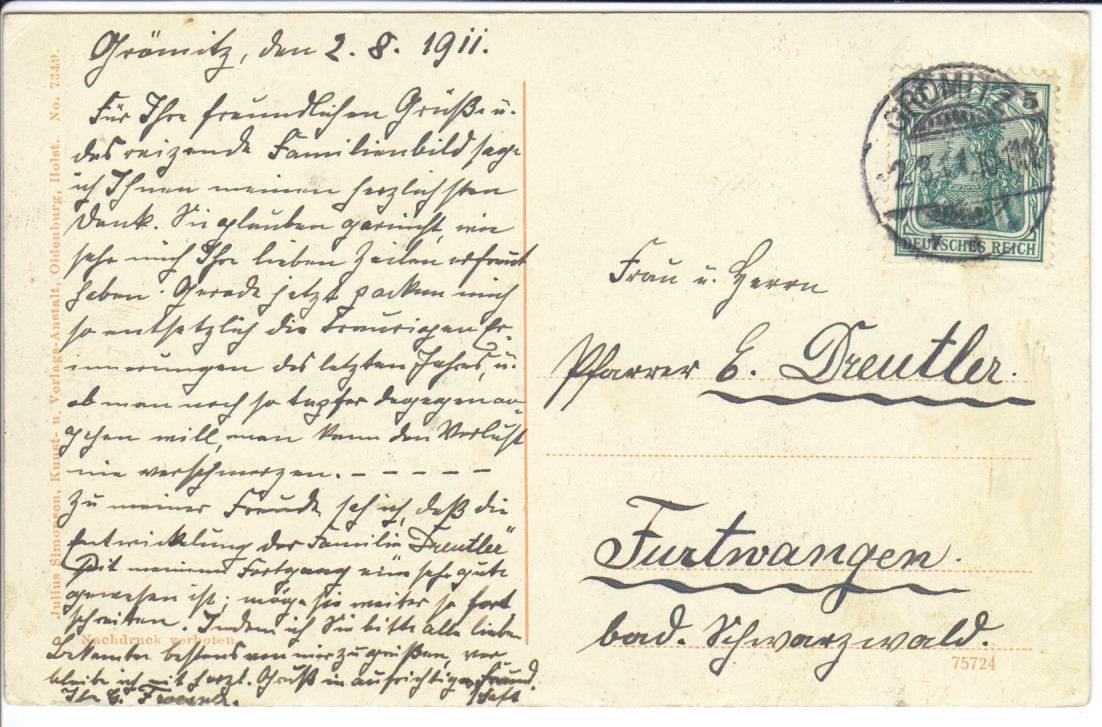 Grömitz, den 2. 8. 1911.
Für Ihre freundlichen Grüße u.
das reizende Familienbild sage
ich Ihnen meinen herzlichsten
Dank. Sie glauben garnicht, wie
sehr mich Ihre lieben Zeilen erfreut
haben. Gerade jetzt packen mich
so entsetzlich die traurigen Er-
innerungen des letzten Jahres, u.
ob man noch so tapfer dagegen an
gehen will, man kann den Verlust
nie verschmerzen. - - - - -
Zu meiner Freude seh ich, daß die
Entwickelung der Familie „Dreutler"
seit meinem Fortgang eine sehr gute
gewesen ist; möge sie weiter so fort
schreiten. Indem ich Sie bitte alle lieben
Bekannten bestens von mir zu grüßen, ver
bleibe ich mit herzl. Gruß in aufrichtiger Freund
schaft
Ihr E.
Frau u. Herrn
Pfarrer E. Dreutler.
Furtwangen.
bad. Schwarzwald.
GRÖMITZ
5
DEUTSCHES REICH
Julius Simonsen, Kunst- u. Verlags-Anstalt, Oldenburg, Holst. No. 7349.
Nachdruck verboten
75724